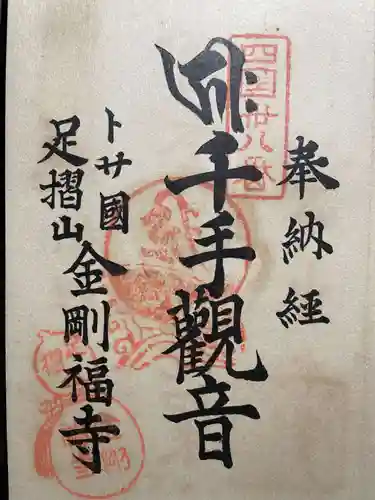 奉納経
四国卅八番
千手觀音
トサ國
足摺山
金剛福寺